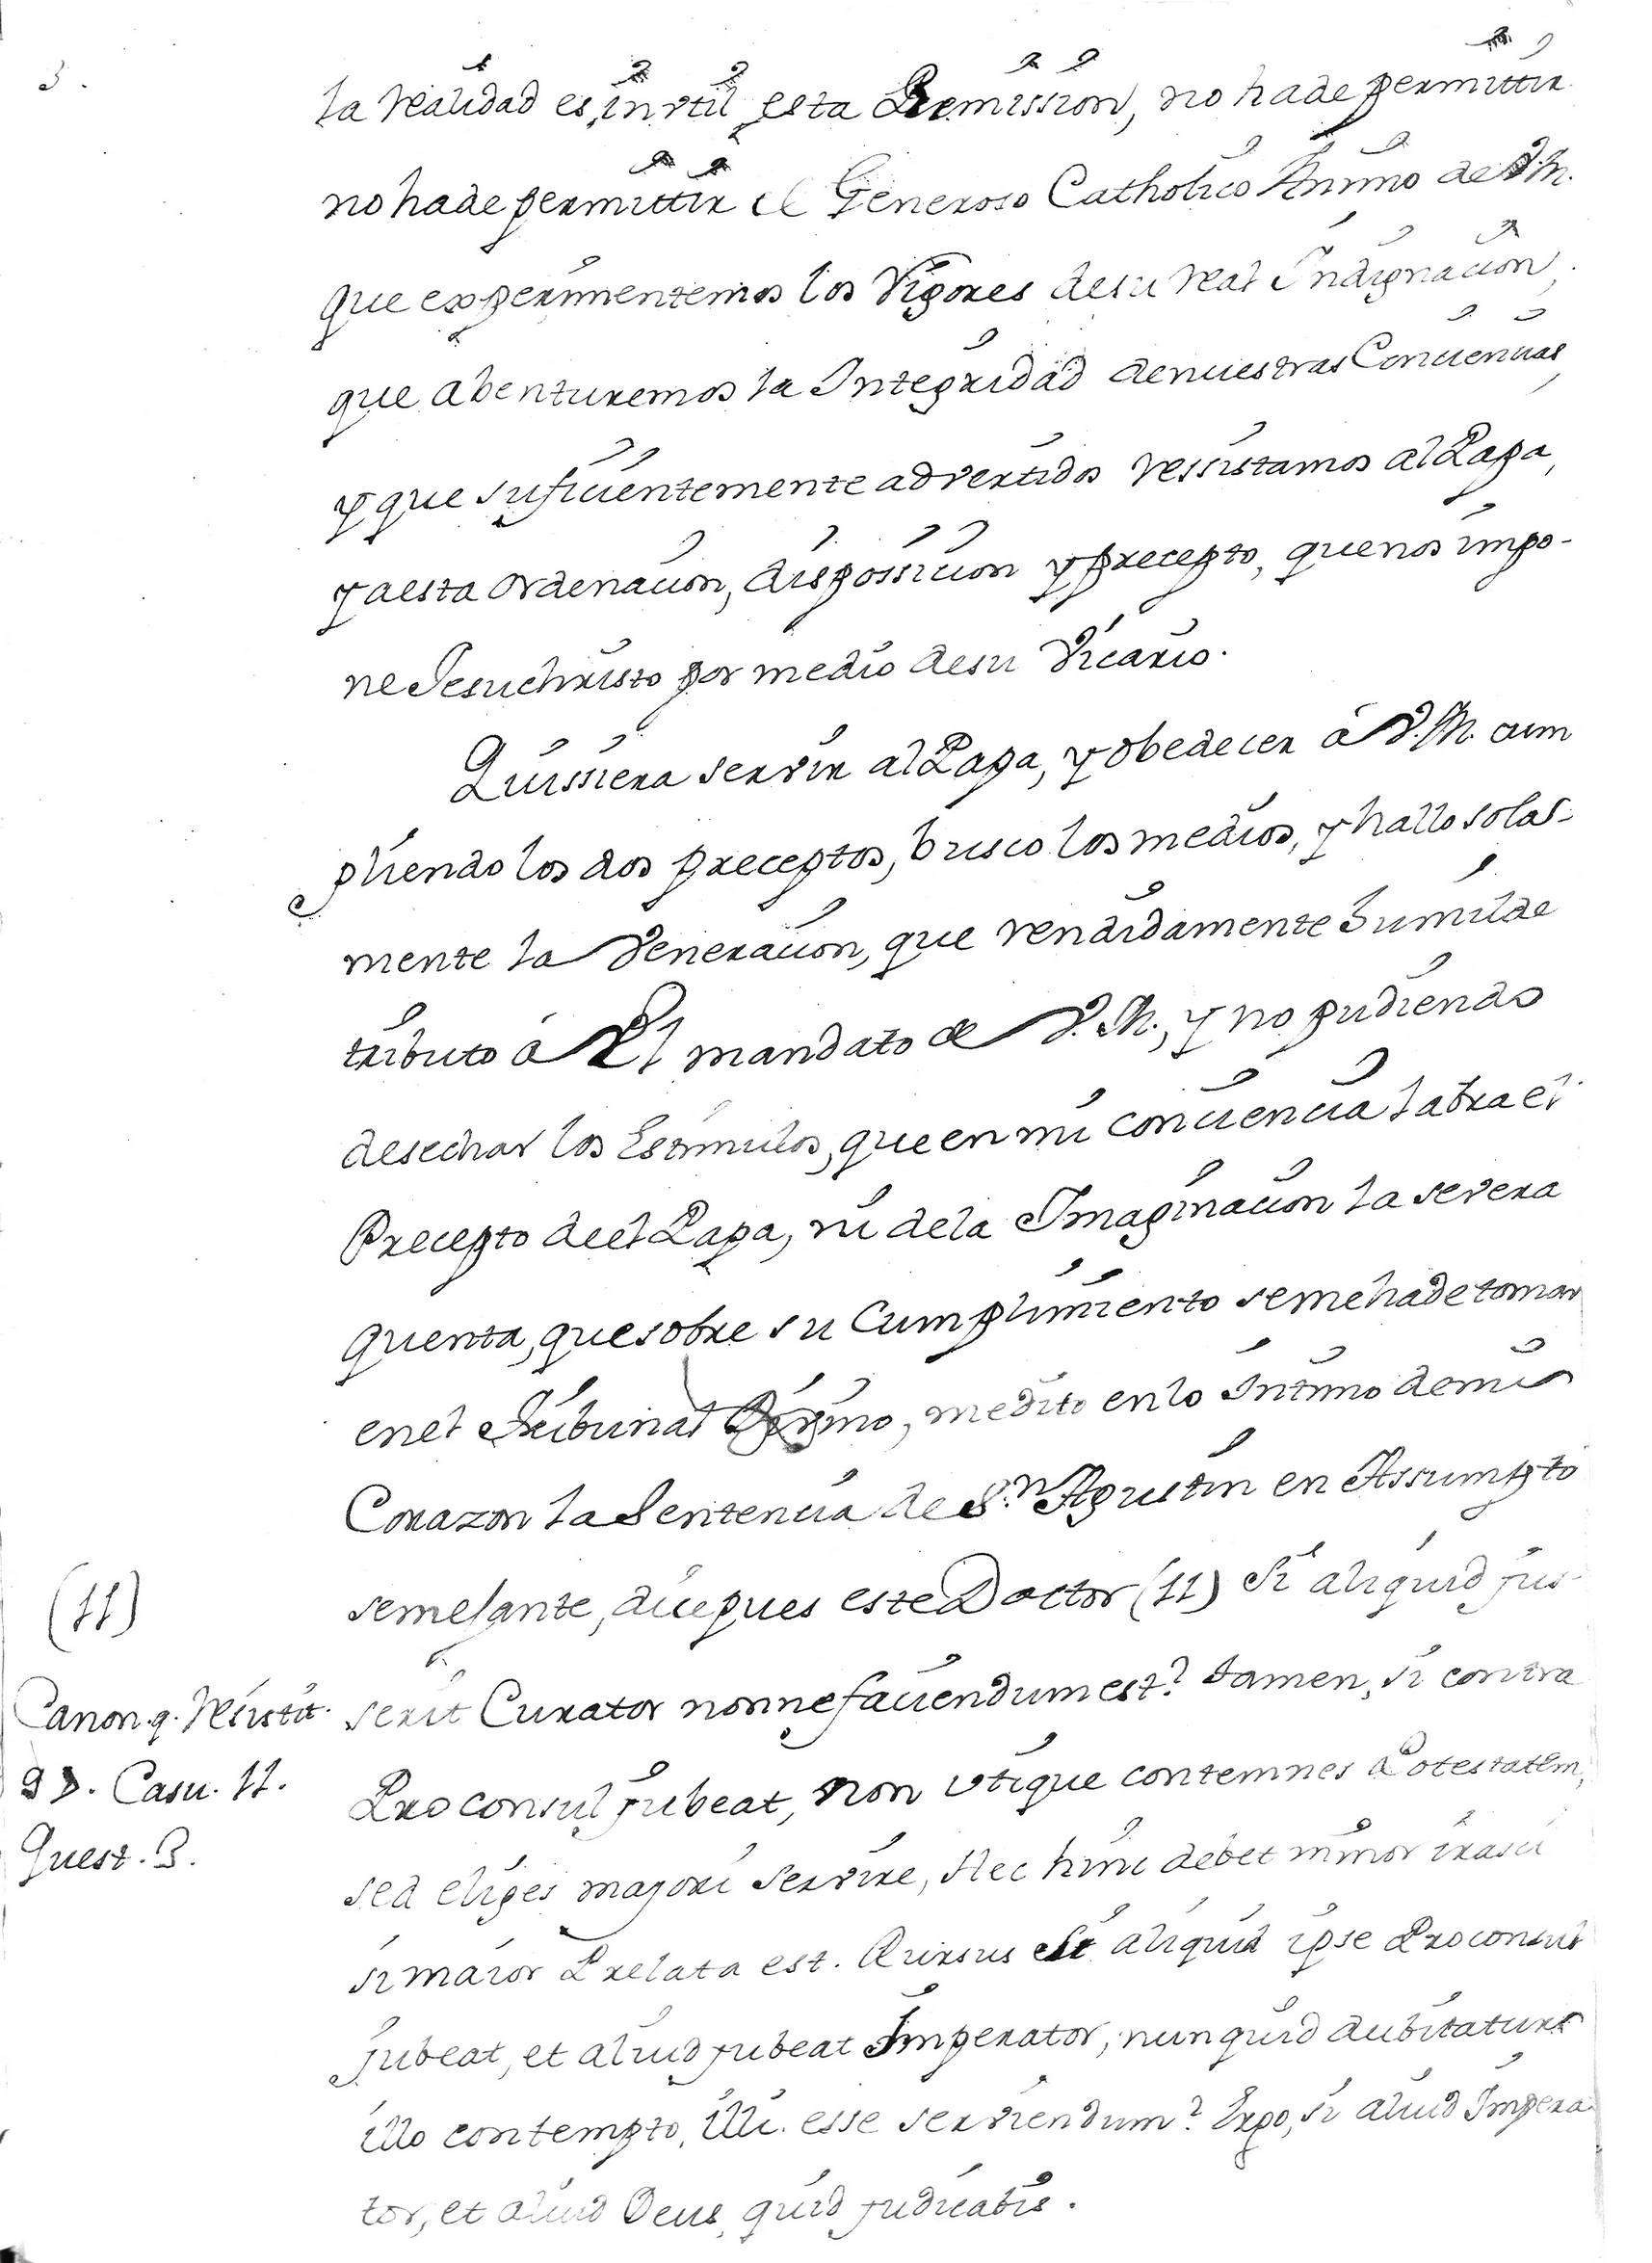 3.
la realidad es inutil esta Remission, no hade permittir
no hade permittir el Generoso Catholico Animo de V.M.
que experimentemos los Vigores desu real Indignacion,
que abenturemos la Integridad denuestras Conciencias,
y que suficientemente advertidos ressistamos al Papa,
y aesta ordenacion, dispossicion y precepto, quenos impo-
ne Jesuchristo por medio desu Vicario.
Quissiera servir al Papa, y obedecer á V.M. cum
pliendo los dos preceptos, busco los medios, y hallo solas-
mente la Veneracion, que rendidamente humilde
tributo á El mandato de V.M., y no pudiendo
desechar los Estimulos, que en mi conciencia labra el
Precepto deel Papa, ni dela Imaginacion la severa
quenta, quesobre su Cumplimiento semehade tomar
enel Tribunal Divino, medito enlo Intimo demi
Corazon la Sentencia de S.n Agustin en Assumpto
semejante, dicepues este Doctor (11) Si aliquid jus-
serit Curator nonne faciendum est? tamen, si contra
Proconsul jubeat, non utique contemnes Potestatem,
sed eliges majori servire, Nec hinc debet minor irasci
si maior Prelata est. Rursus si aliquid ipse Proconsul
jubeat, et aliud jubeat Imperator, nunquid dubitatur
illo contempto, illi esse serviendum? Ergo, si aliud Impera
tor, et aliud Deus, quid judicatis.
(11)
Canon. q. Resistit.
93. Casu. 11.
Quest. 3.